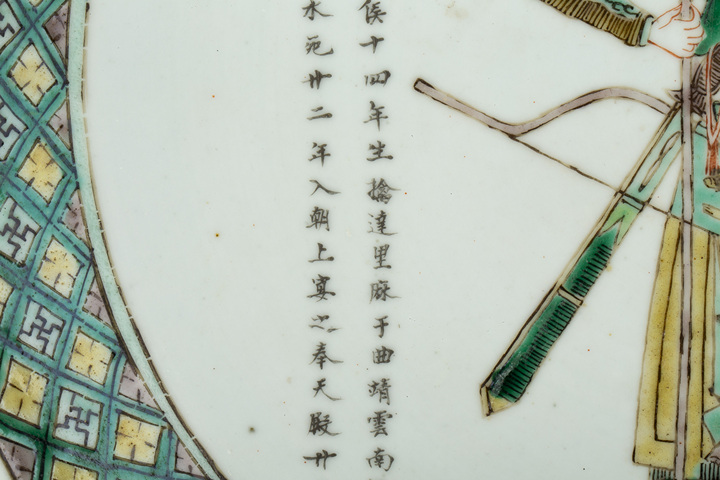 侯十四年生擒達里麻于曲靖雲南
永苑廿二年入朝上宴之奉天殿廿